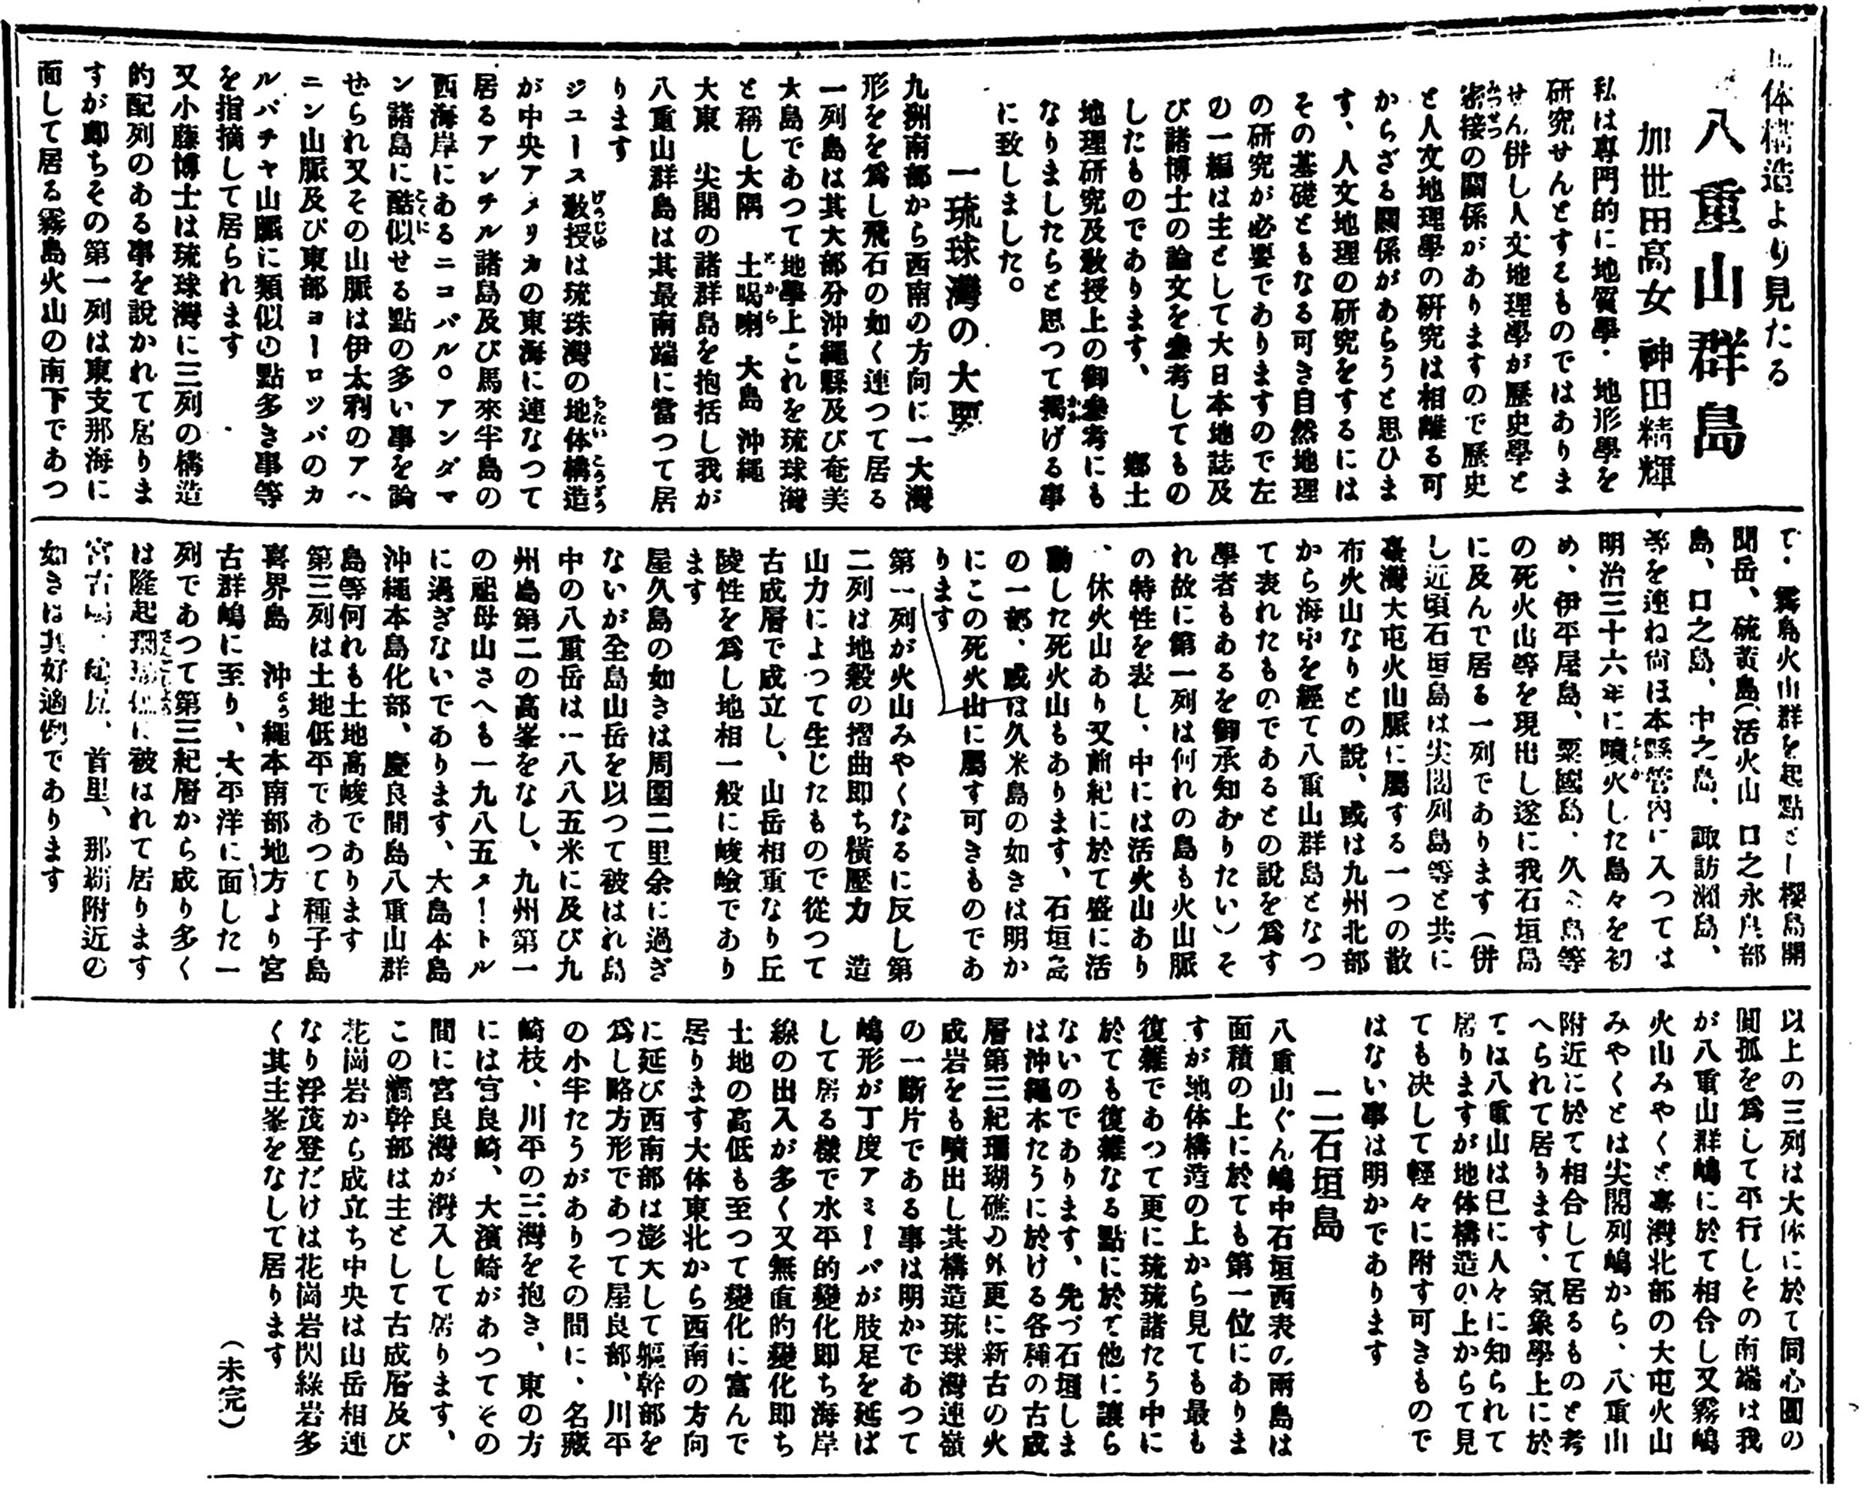 体構造より見たる
八重山群島
加世田高女 神田精輝
私は専門的に地質學・地形學を
研究せんとするものではありま
せん併し人文地理學が歷史學と
密接の關係がありますので歷史
と人文地理學の研究は相離る可
からざる關係があらうと思ひま
す、人文地理の研究をするには
その基礎ともなる可き自然地理
の研究が必要でありますので左
の一編は主として大日本地誌及
び諸博士の論文を參考してもの
したものであります、　鄕土
地理研究及敎授上の御參考にも
なりましたらと思つて揭げる事
に致しました。
一琉球灣の大要
九洲南部から西南の方向に一大灣
形をを爲し飛石の如く連つて居る
一列島は其大部分沖繩縣及び奄美
大島であつて地學上これを琉球灣
と稱し大隅　土噶喇　大島　沖繩
大東　尖閣の諸群島を抱括し我が
八重山群島は其最南端に當つて居
ります
ジユース敎授は琉球灣の地体構造
が中央アメリカの東海に連なつて
居るアンチル諸島及び馬來半島の
西海岸にあるニコバル。アンダマ
ン諸島に酷似せる點の多い事を論
せられ又その山脈は伊太利のアペ
ニン山脈及び東部ヨーロツパのカ
ルパチヤ山脈に類似の點多き事等
を指摘して居られます
又小藤博士は琉球灣に三列の構造
的配列のある事を說かれて居りま
すが卽ちその第一列は東支那海に
面して居る霧島火山の南下であつ
て・霧島火山群を起點とし櫻島開
聞岳、硫黃島(活火山　口之永良部
島、口之島、中之島、諏訪瀨島、
等を連ね尙ほ本縣管內に入つては
明治三十六年に噴火した島々を初
め、伊平屋島、粟國島、久米島等
の死火山等を現出し遂に我石垣島
に及んで居る一列であります(併
し近頃石垣島は尖閣列島等と共に
臺灣大屯火山脈に屬する一つの散
布火山なりとの說、或は九州北部
から海中を經て八重山群島となつ
て表れたものであるとの說を爲す
學者もあるを御承知ありたい)そ
れ故に第一列は何れの島も火山脈
の特性を表し、中には活火山あり
、休火山あり又前紀に於て盛に活
動した死火山もあります、石垣島
の一部、或は久米島の如きは明か
にこの死火山に屬す可きものであ
ります
第一列が火山みやくなるに反し第
二列は地殼の摺曲卽ち橫壓力　造
山力によつて生じたもので從つて
古成層で成立し、山岳相重なり丘
陵性を爲し地相一般に峻嶮であり
ます
屋久島の如きは周圍二里余に過ぎ
ないが全島山岳を以つて被はれ島
中の八重岳は一八八五米に及び九
州島第二の高峯をなし、九州第一
の祖母山さへも一九八五メートル
に過ぎないであります、大島本島
沖繩本島化部、慶良間島八重山群
島等何れも土地高峻であります
第三列は土地低平であつて種子島
喜界島　沖繩本南部地方より宮
古群嶋に至り、大平洋に面した一
列であつて第三紀層から成り多く
は隆起珊瑚礁に被はれて居ります
宮古島、　首里、那覇附近の
如きは其好適例であります
以上の三列は大体に於て同心圓の
間孤を爲して平行しその南端は我
が八重山群嶋に於て相合し又霧嶋
火山みやくと臺灣北部の大屯火山
みやくとは尖閣列嶋から、八重山
附近に於て相合して居るものと考
へられて居ります、氣象學上に於
ては八重山は已に人々に知られて
居りますが地体構造の上からて見
ても决して輕々に附す可きもので
はない事は明かであります
二石垣島
八重山ぐん嶋中石垣西表の兩島は
面積の上に於ても第一位にありま
すが地体構造の上から見ても最も
復雜であつて更に琉琉諸たう中に
於ても復雜なる點に於て他に讓ら
ないのであります、先づ石垣しま
は沖繩木たうに於ける各種の古成
層第三紀珊瑚礁の外更に新古の火
成岩をも噴出し其構造琉球灣連嶺
の一斷片である事は明かであつて
嶋形が丁度アミーバが肢足を延ば
して居る樣で水平的變化卽ち海岸
線の出入が多く又無直的變化卽ち
土地の高低も至つて變化に富んで
居ります大体東北から西南の方向
に延び西南部は澎大して軀幹部を
爲し略方形であつて屋良部、川平
の小半たうがありその間に、名藏
崎枝、川平の三灣を抱き、東の方
には宮良崎、大濱崎があつてその
間に宮良灣が灣入して居ります、
この軀幹部は主として古成層及び
花崗岩から成立ち中央は山岳相連
なり浮茂登だけは花崗岩閃綠岩多
く其主峯をなして居ります
(未完)